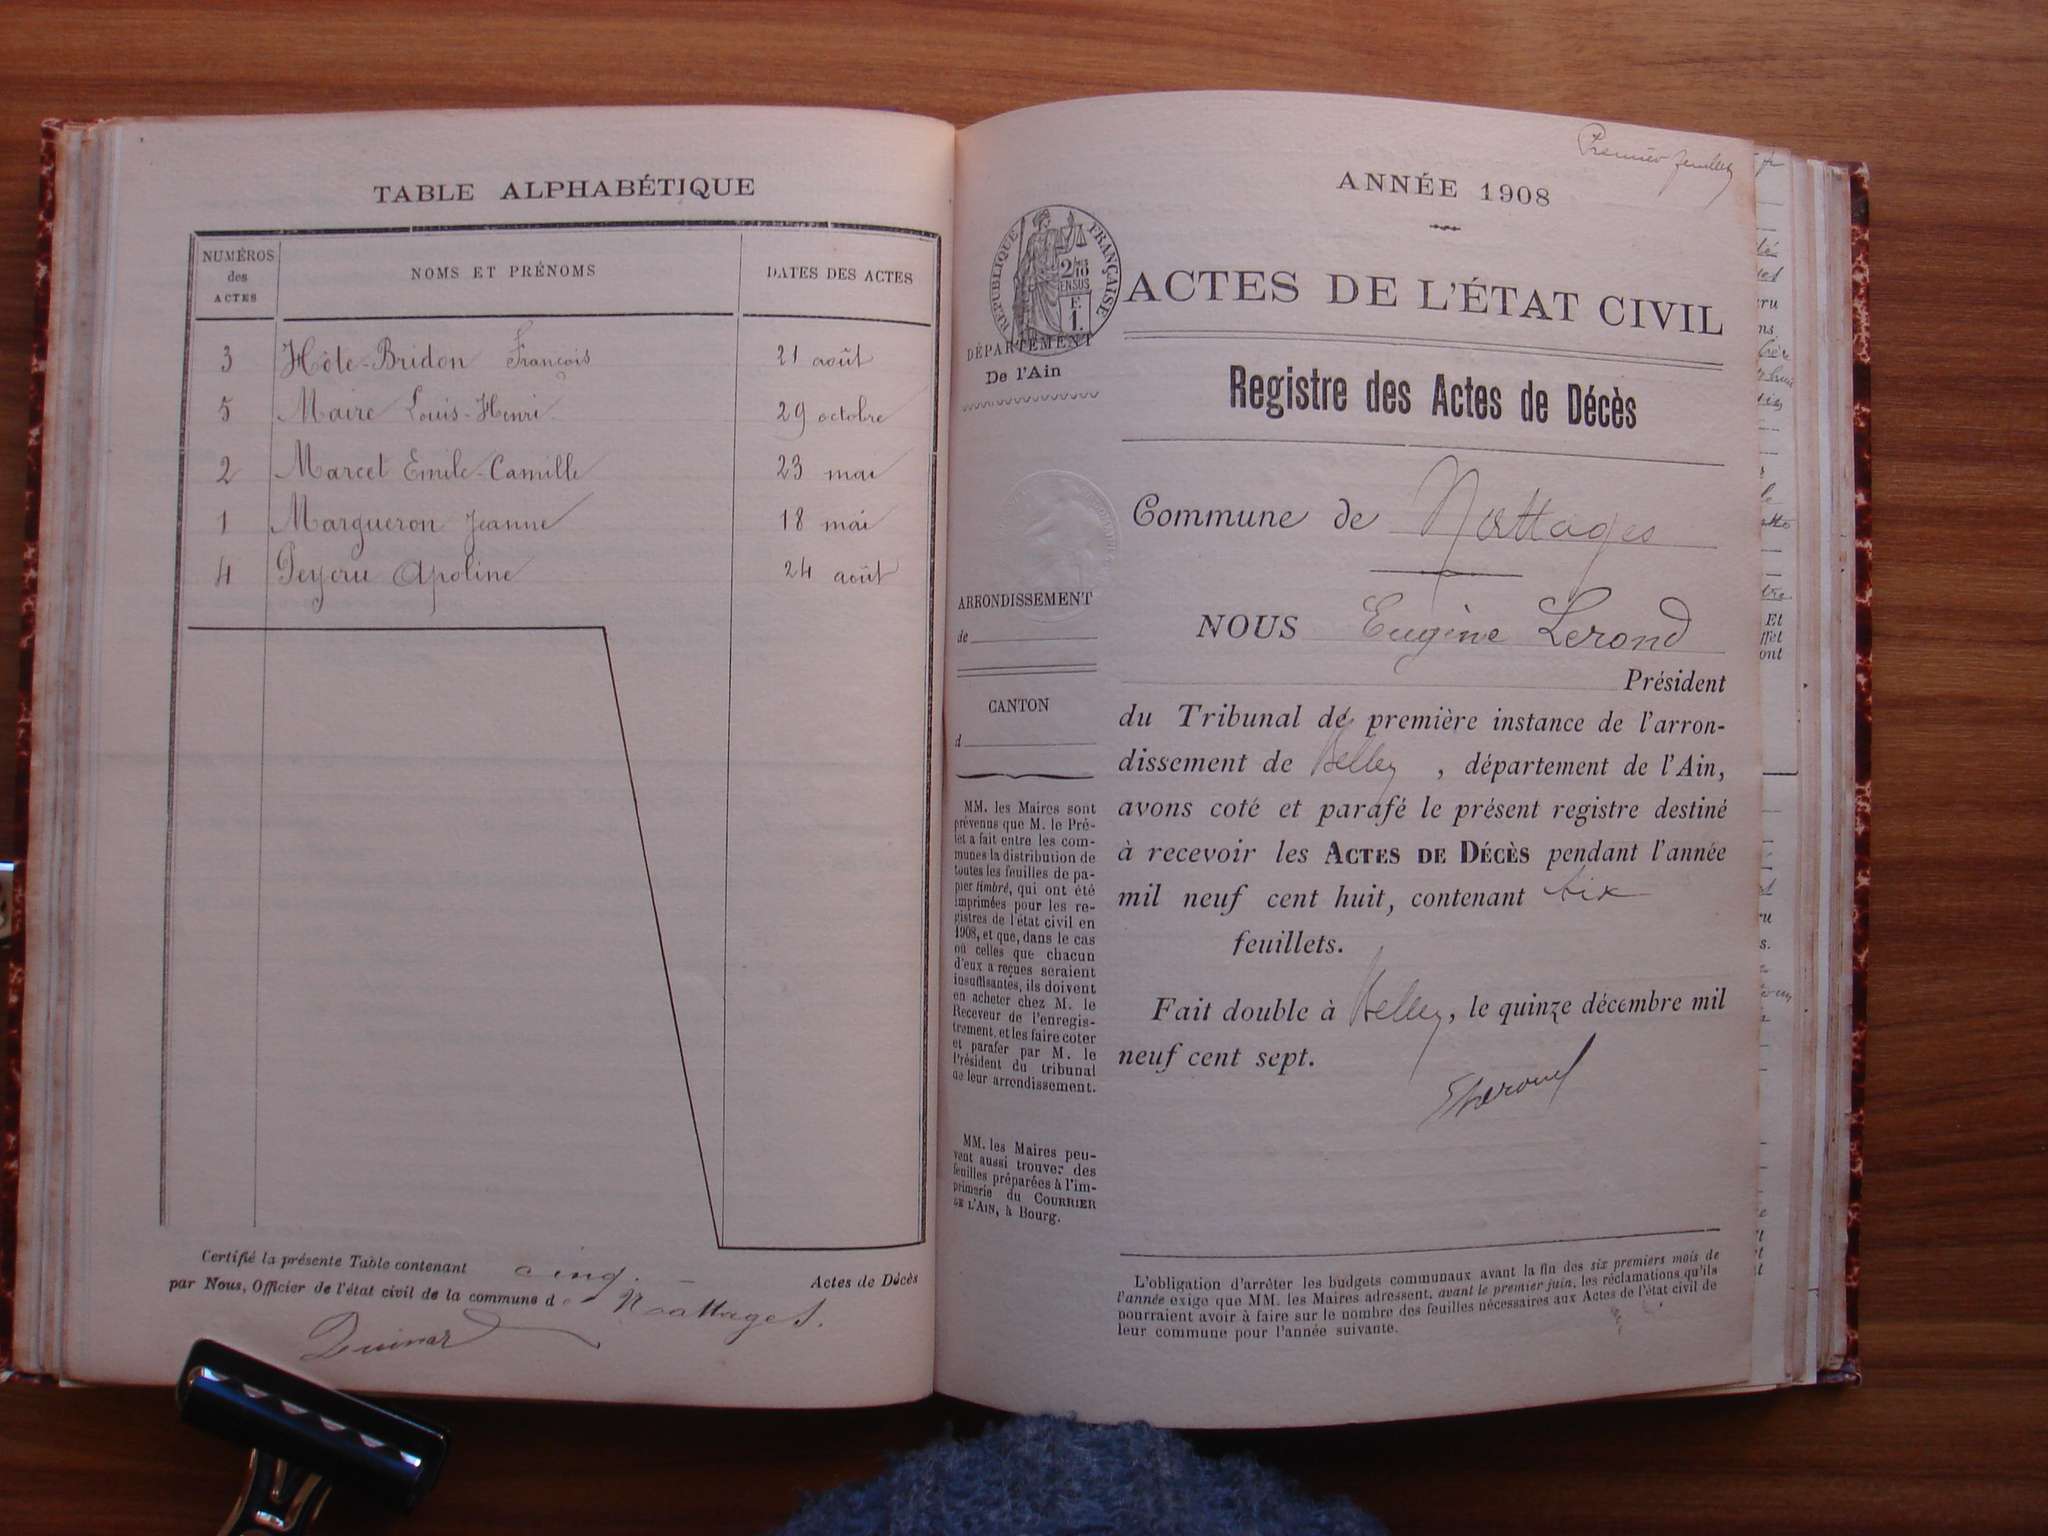 TABLE ALPHABÉTIQUE
NUMÉROS des ACTES NOMS ET PRÉNOMS DATES DES ACTES
3 Hôte-Bridon François 21 août
5 Maire Louis-Henri 29 octobre
2 Marcet Emile-Camille 23 mai
1 Margueron Jeanne 18 mai
4 Peycru Apoline 24 août
Certifié la présente Table contenant cinq Actes de Décès
par Nous, Officier de l'état civil de la commune de Nattages.
Premier feuillet
ANNÉE 1908
RÉPUBLIQUE FRANÇAISE
2/10 EN SUS
F.
1.
ACTES DE L'ÉTAT CIVIL
DÉPARTEMENT
De l'Ain
Registre des Actes de Décès
Commune de Nattages
ARRONDISSEMENT
de
NOUS Eugène Lerond
Président
CANTON
d
du Tribunal de première instance de l'arron-
dissement de Belley, département de l'Ain,
avons coté et parafé le présent registre destiné
à recevoir les ACTES DE DÉCÈS pendant l'année
mil neuf cent huit, contenant six
feuillets.
Fait double à Belley, le quinze décembre mil
neuf cent sept.
MM. les Maires sont
prévenus que M. le Pré-
fet a fait entre les com-
munes la distribution de
toutes les feuilles de pa-
pier timbré, qui ont été
imprimées pour les re-
gistres de l'état civil en
1908, et que, dans le cas
où celles que chacun
d'eux a reçues seraient
insuffisantes, ils doivent
en acheter chez M. le
Receveur de l'enregis-
trement, et les faire coter
et parafer par M. le
Président du tribunal
de leur arrondissement.
MM. les Maires peu-
vent aussi trouver des
feuilles préparées à l'im-
primerie du COURRIER
DE L'AIN, à Bourg.
L'obligation d'arrêter les budgets communaux avant la fin des six premiers mois de
l'année exige que MM. les Maires adressent, avant le premier juin, les réclamations qu'ils
pourraient avoir à faire sur le nombre des feuilles nécessaires aux Actes de l'état civil de
leur commune pour l'année suivante.